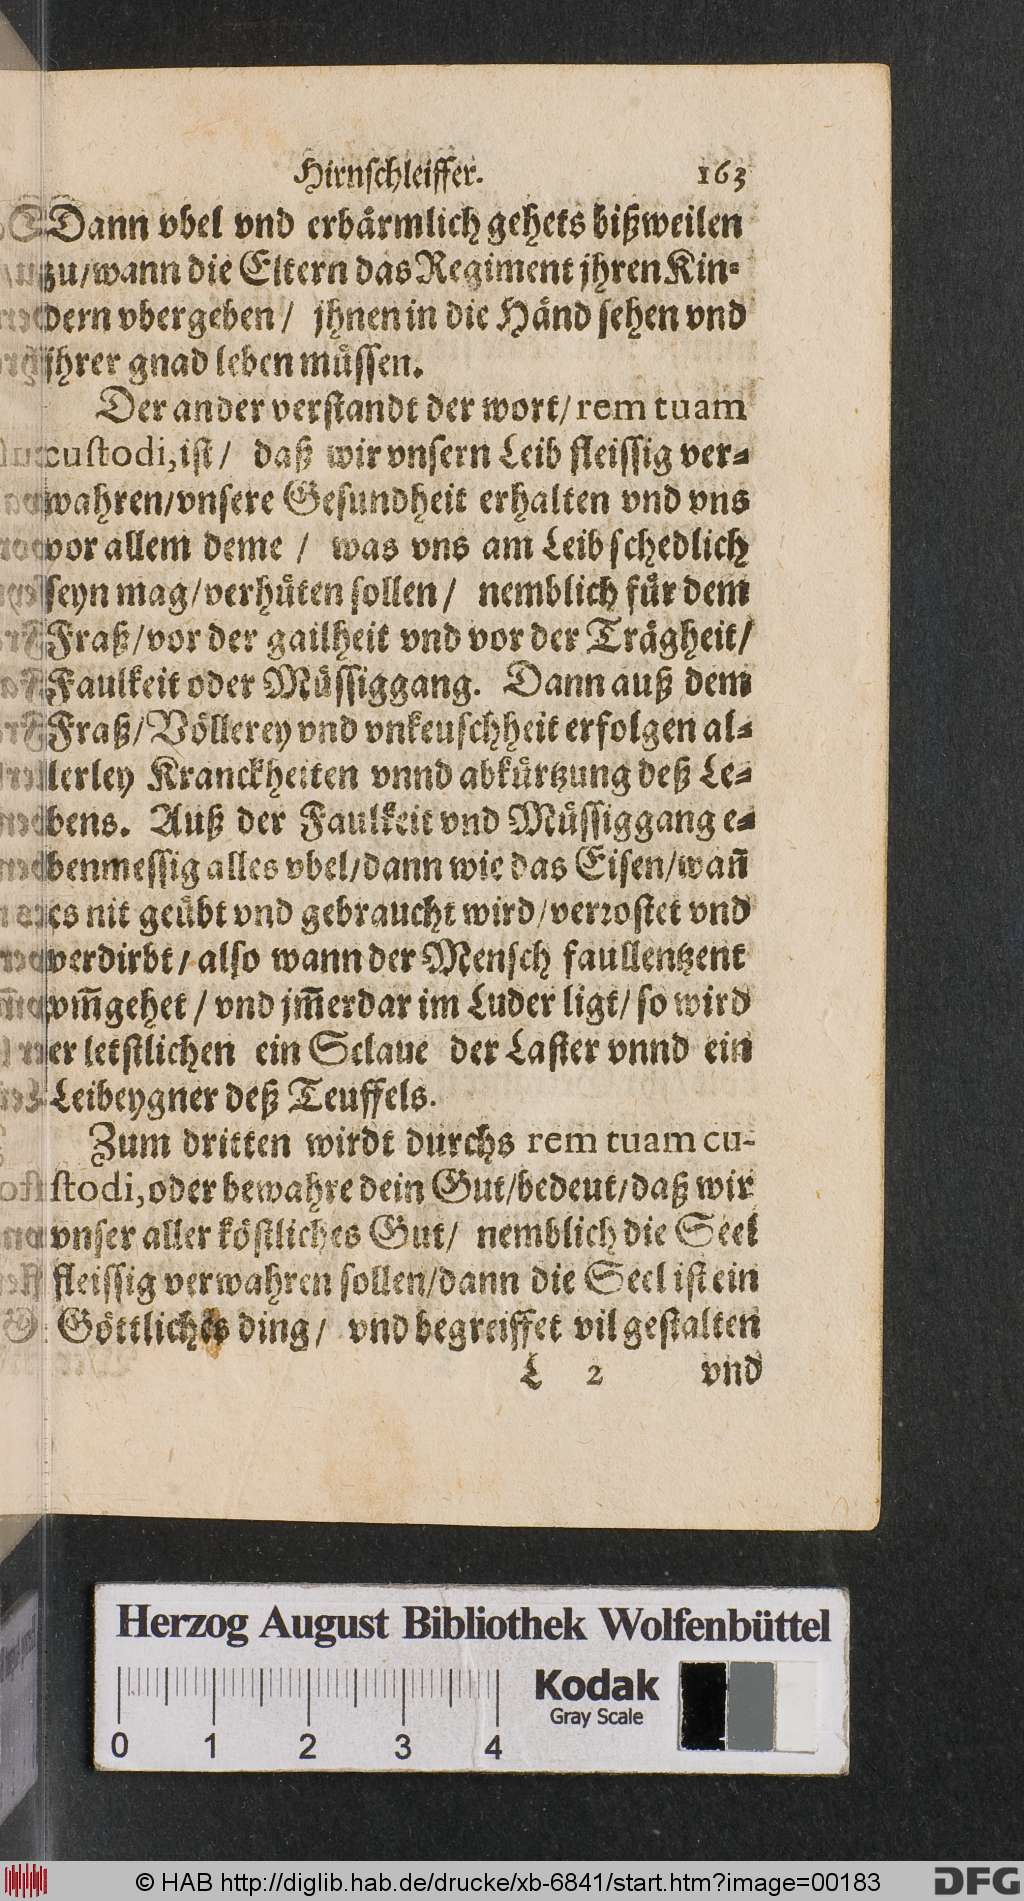 Hirnschleiffer. 163
Dann vbel vnd erbårmlich gehets bißweilen
zu/wann die Eltern das Regiment jhren Kin-
dern vbergeben / jhnen in die Händ sehen vnd
jhrer gnad leben můssen.
Der ander verstandt der wort/ rem tuam
custodi, ist / daß wir vnsern Leib fleissig ver-
wahren/vnsere Gesundheit erhalten vnd vns
vor allem deme / was vns am Leib schedlich
seyn mag/verhůten sollen / nemblich fůr dem
Fraß/vor der gailheit vnd vor der Trägheit/
Faulkeit oder Můssiggang. Dann auß dem
Fraß/Völlerey vnd vnkeuschheit erfolgen al-
lerley Kranckheiten vnnd abkůrtzung deß Le-
bens. Auß der Faulkeit vnd Můssiggang e-
benmessig alles vbel/dann wie das Eisen/wañ
es nit geůbt vnd gebraucht wird/verrostet vnd
verdirbt/also wann der Mensch faullentzent
vm̃gehet / vnd jm̃erdar im Luder ligt/so wird
er letstlichen ein Sclaue der Laster vnnd ein
Leibeygner deß Teuffels.
Zum dritten wirdt durchs rem tuam cu-
stodi, oder bewahre dein Gut/bedeut/daß wir
vnser aller köstliches Gut/ nemblich die Seel
fleissig verwahren sollen/dann die Seel ist ein
Göttliches ding / vnd begreiffet vil gestalten
L 2 vnd
Herzog August Bibliothek Wolfenbüttel
Kodak
Gray Scale
0 1 2 3 4
© HAB http://diglib.hab.de/drucke/xb-6841/start.htm?image=00183
DFG